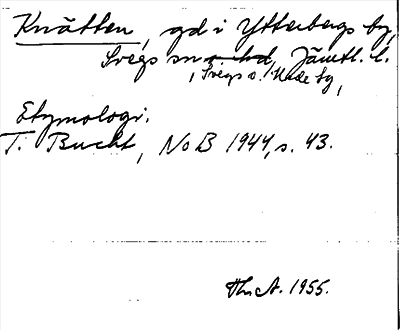 Knätten, gd i Ytterbergs by,
Svegs sn o. hd, Jämtl. l.
, Svegs o. Hede tg,
Etymologi.
T. Bucht, NoB 1944, s. 43.
A. 1955.